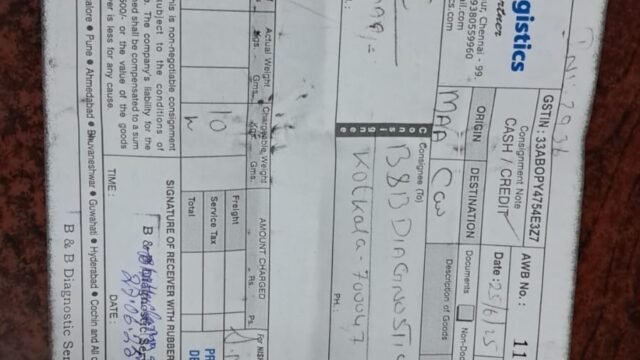 gistics
artner
ur, Chennai - 99.
9380559960
il.com
cs.com
GSTIN : 33ABOPY4754E3Z7
Consignment Note
CASH / CREDIT
AWB No. :
11
Date : 25/6/25
ORIGIN
DESTINATION
Documents
Non-Doc
MAA
CCU
Description of Goods
Consignee (To)
B&B DIAGNOSTIC
Kolkata - 700047
Ph.:
Actual Weight
Chargeable Weight
AMOUNT CHARGED
Kgs.
Gms.
Kgs.
Gms.
Rs.
Ps.
For
10
Freight
Service Tax
Total
his is non-negotiable consignment
subject to the conditions of
. The company's liability for the
ned shall be compensated to a sum
500/- or the value of the goods
er is less for any cause.
SIGNATURE OF RECEIVER WITH RUBBER
TIME :
DATE :
B & B Diagnostic Ser
alore ● Pune ● Ahmedabad ● Bhuvaneshwar ● Guwahati ● Hyderabad ● Cochin and All